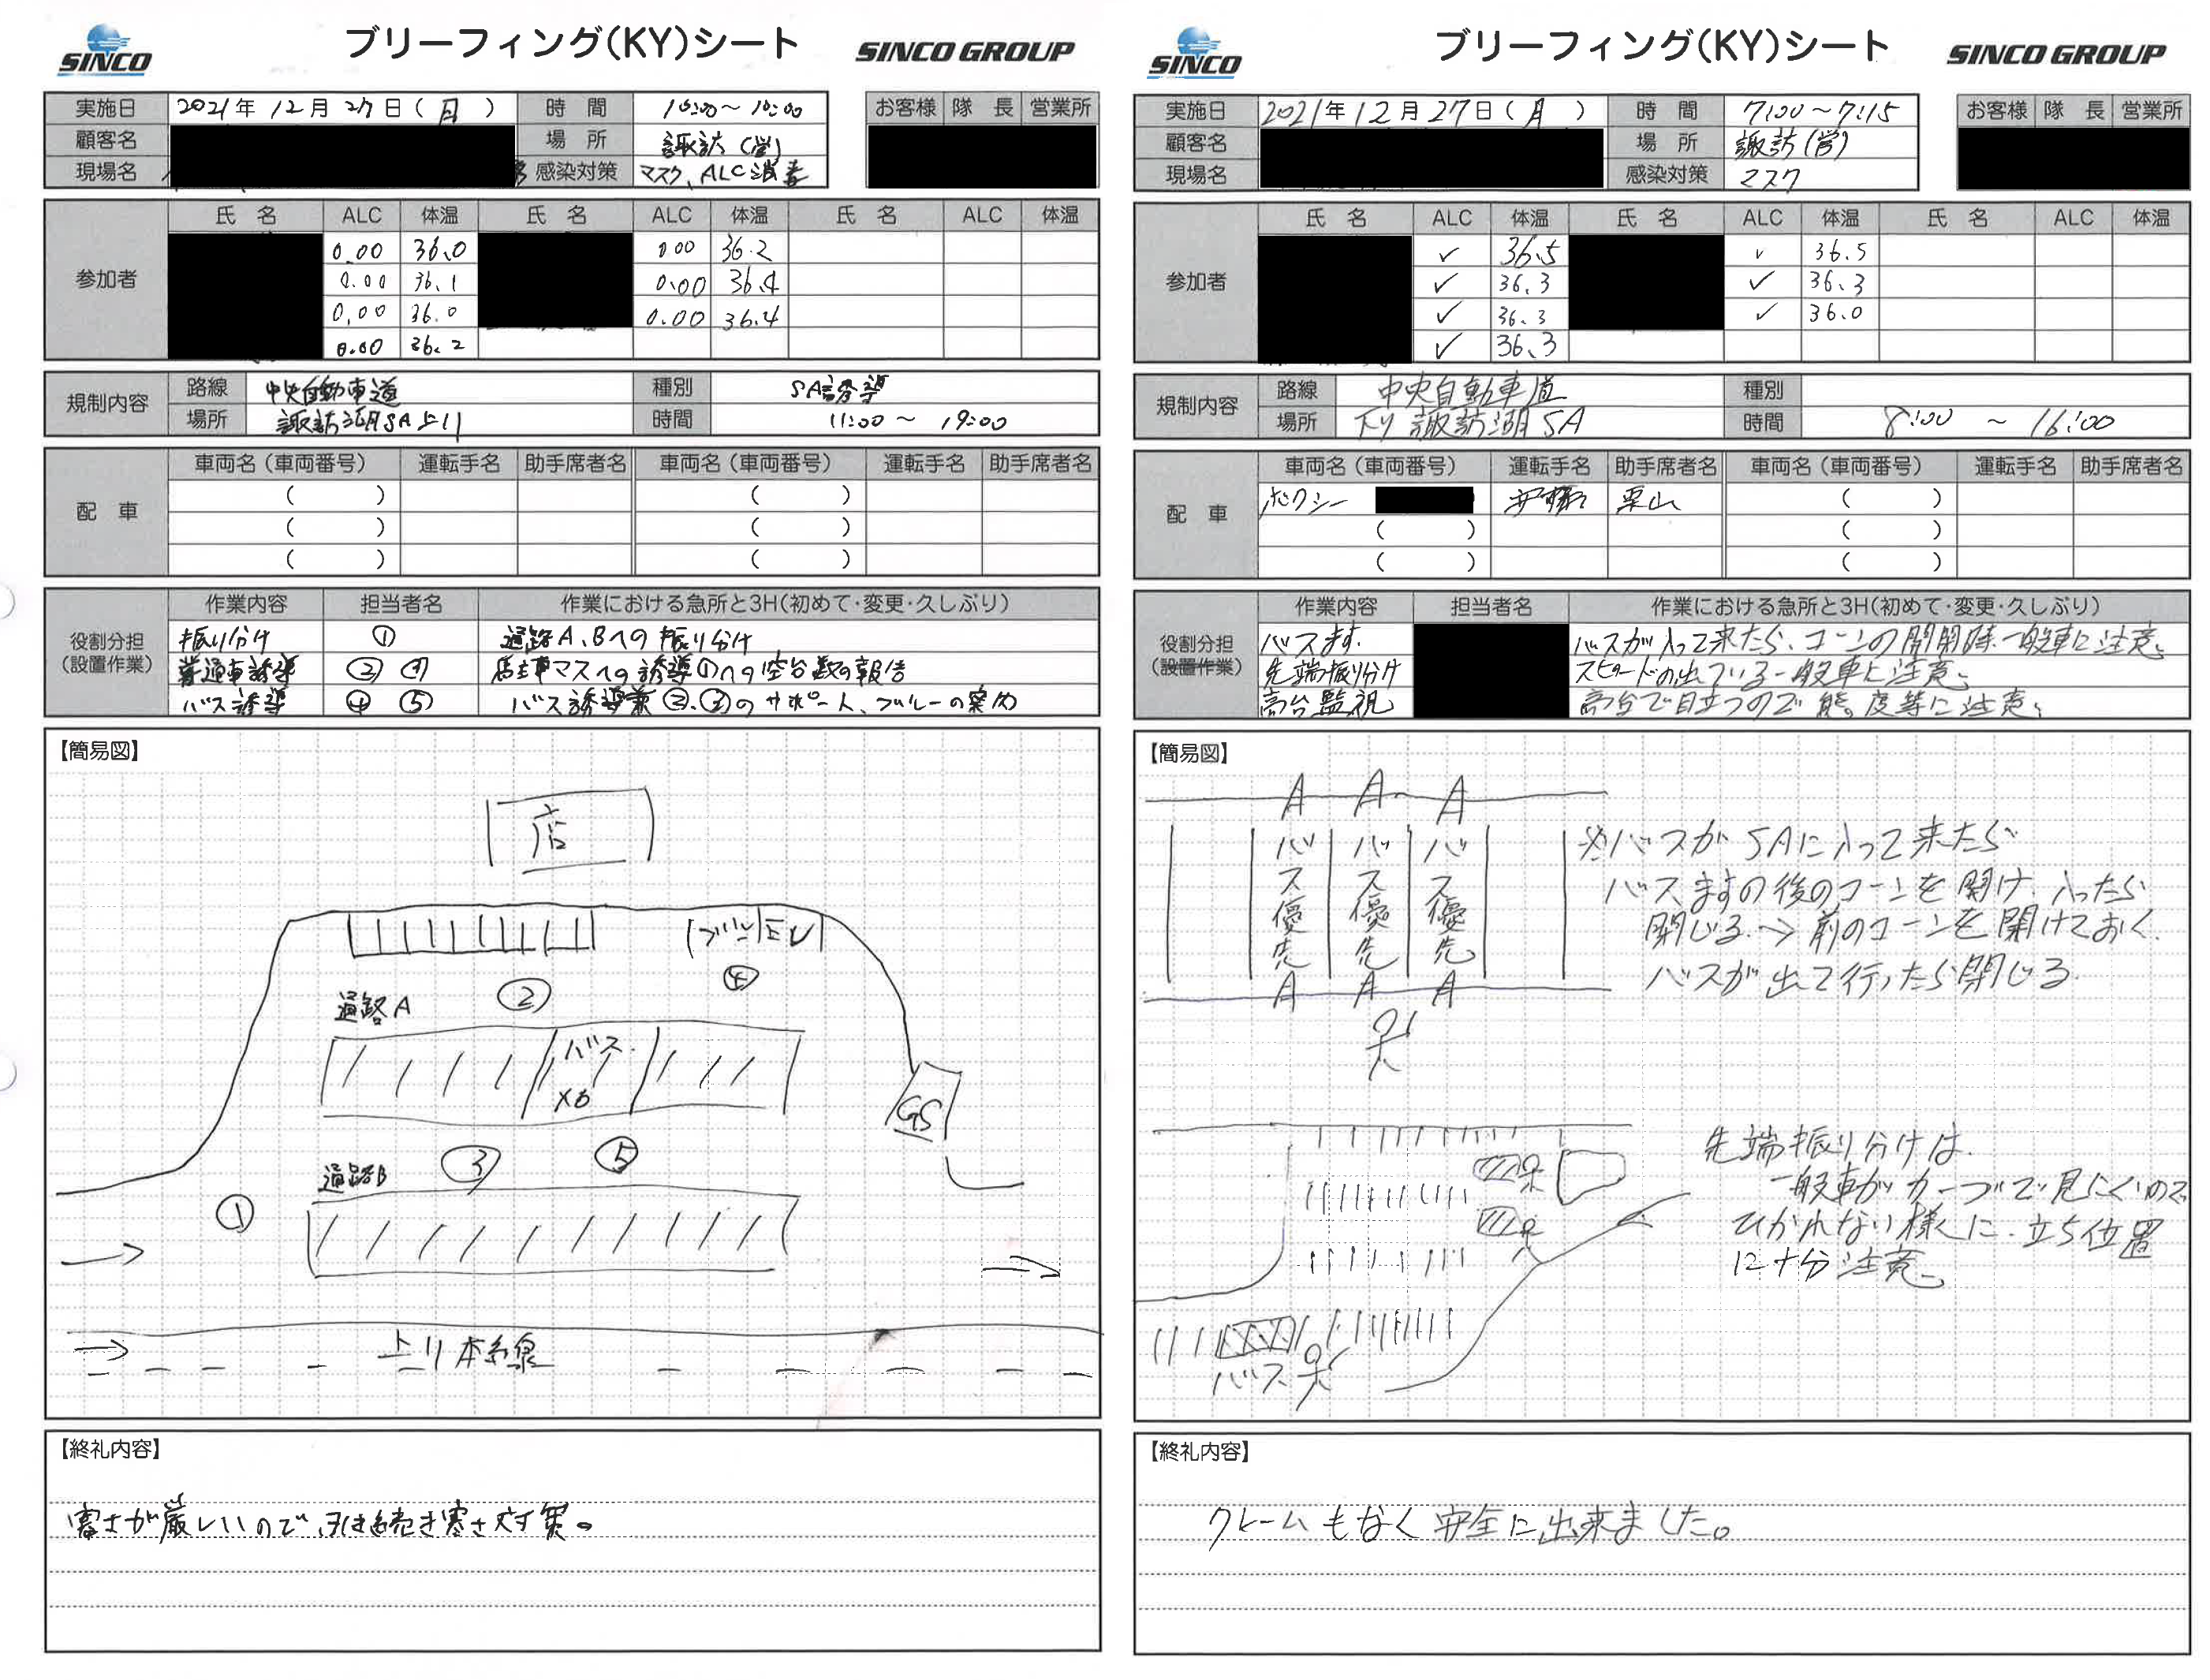 SINCO
ブリーフィング(KY)シート
SINCO GROUP
実施日 2021年12月27日(月) 時間 10:00～10:00
お客様 隊長 営業所
顧客名 場所 諏訪(営)
現場名 感染対策 マスク、ALC消毒
参加者
氏名 ALC 体温 氏名 ALC 体温 氏名 ALC 体温
0.00 36.0 0.00 36.2
0.00 36.1 0.00 36.4
0.00 36.0 0.00 36.4
0.00 36.2
規制内容
路線 中央自動車道 種別 SA誘導
場所 諏訪湖SA上り 時間 11:00～19:00
配車
車両名(車両番号) 運転手名 助手席者名 車両名(車両番号) 運転手名 助手席者名
( ) ( )
( ) ( )
( ) ( )
役割分担
(設置作業)
作業内容 担当者名 作業における急所と3H(初めて・変更・久しぶり)
振り分け ① 通路A、Bへの振り分け
普通車誘導 ② マスへの誘導①への空台数の報告
バス誘導 ④ ⑤ バス誘導兼②、③のサポート、ブルーの案内
【簡易図】
店
④
通路A ②
バス
×6
GS
通路B ③ ⑤
①
上り本線
【終礼内容】
寒さが厳しいので、引き続き寒さ対策。
SINCO
ブリーフィング(KY)シート
SINCO GROUP
実施日 2021年12月27日(月) 時間 7:00～7:15
お客様 隊長 営業所
顧客名 場所 諏訪(営)
現場名 感染対策 マスク
参加者
氏名 ALC 体温 氏名 ALC 体温 氏名 ALC 体温
✓ 36.5 ✓ 36.5
✓ 36.3 ✓ 36.3
✓ 36.3 ✓ 36.0
✓ 36.3
規制内容
路線 中央自動車道 種別
場所 下り 諏訪湖SA 時間 8:00 ～ 16:00
配車
車両名(車両番号) 運転手名 助手席者名 車両名(車両番号) 運転手名 助手席者名
ボクシー 安藤 栗山 ( )
( ) ( )
( ) ( )
役割分担
(設置作業)
作業内容 担当者名 作業における急所と3H(初めて・変更・久しぶり)
バスます. バスが入って来たら、コーンの開閉時一般車に注意。
先端振り分け スピードの出ている一般車に注意。
高台監視 高台で目立つので態度等に注意。
【簡易図】
A A A
バス優先 バス優先 バス優先
A A A
※バスがSAに入って来たら
バスますの後のコーンを開け、入ったら
閉じる→前のコーンを開けておく.
バスが出て行ったら閉じる.
先端振り分けは.
一般車がカーブで見にくいので
ひかれない様に.立ち位置
に十分注意。
バス
【終礼内容】
クレームもなく安全に出来ました。